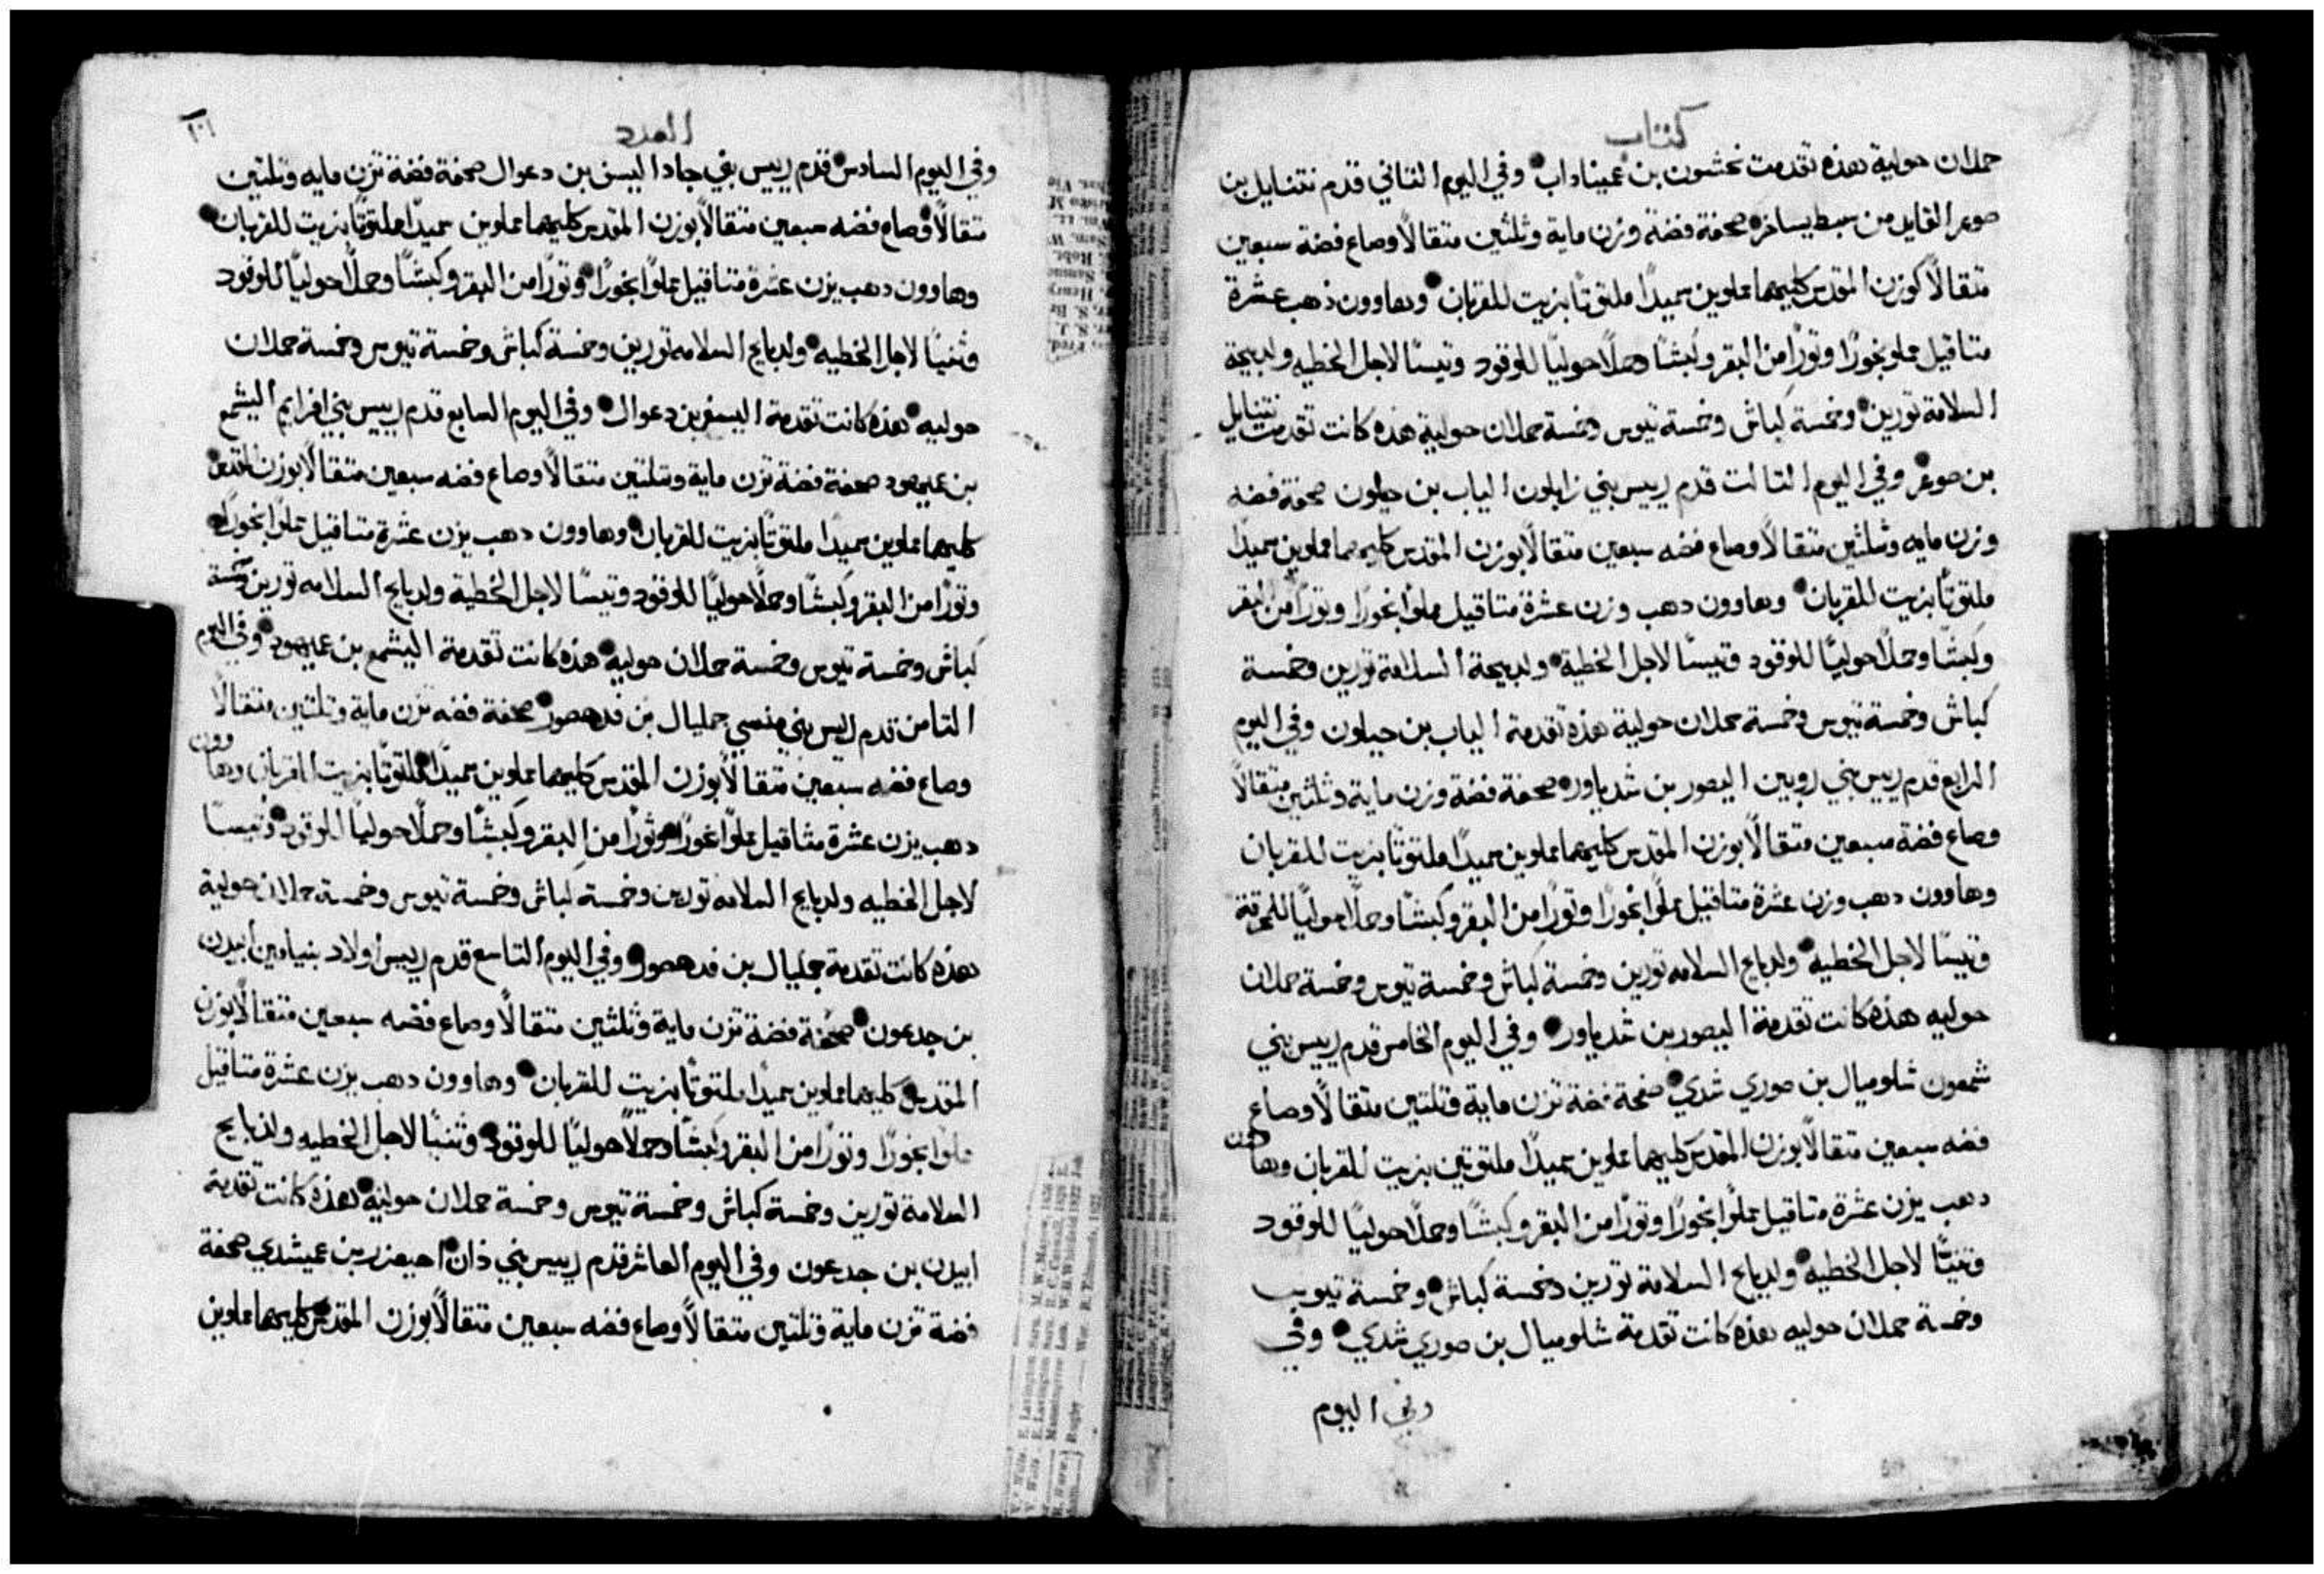 كتاب
حملان حولية هذه تقدمت نحشون بن عميناداب وفي اليوم التاني قدم نتنايل بن
صوعر القايل من سبط يساخر صحفة فضة وزن ماية وثلثين متقالاً وصاع فضة سبعين
متقالاً كوزن المقدس كليهما مملوين سميدًا ملتوتًا بزيت للقربان وهاوون ذهب عشرة
متاقيل مملو بخورًا وتورًا من البقر وكبشًا وحملًا حوليًا للوقود وتيسًا لاجل الخطيه ولدبيحة
السلامة تورين وخمسة كباش وخمسة تيوس وخمسة حملان حولية هذه كانت تقدمت نتنايل
بن صوعر وفي اليوم التالت قدم رييس بني زابلون الياب بن حيلون صحفة فضه
وزن مايه وثلثين متقالاً وصاع فضه سبعين متقالاً بوزن المقدس كليهما مملوين سميدًا
ملتوتًا بزيت للقربان وهاوون دهب وزن عشرة متاقيل مملوا بخورًا وتورًا من البقر
وكبشًا وحملًا حوليًا للوقود وتيسًا لاجل الخطية ولدبيحة السلامة تورين وخمسة
كباش وخمسة تيوس وخمسة حملان حولية هذه تقدمة الياب بن حيلون وفي اليوم
الرابع قدم رييس بني روبين اليصور بن شدياور صحفة فضة وزن ماية وثلثين متقالاً
وصاع فضة سبعين متقالاً بوزن المقدس كليهما مملوين سميدًا ملتوتًا بزيت للقربان
وهاوون دهب وزن عشرة متاقيل مملوًا بخورًا وتورًا من البقر وكبشًا وحملًا حوليًا للمحرقة
وتيسًا لاجل الخطية ولدبايح السلامه تورين وخمسة كباش وخمسة تيوس وخمسة حملان
حوليه هذه كانت تقدمة اليصور بن شدياور وفي اليوم الخامس قدم رييس بني
شمعون شلوميال بن صوري شدي صفحة فضة تزن ماية وتلتين متقالاً وصاع
فضه سبعين متقالاً بوزن المقدس كليهما مملوين سميدًا ملتوتين بزيت للقربان وهاوون
دهب يزن عشرة متاقيل مملوًا بخورًا وتورًا من البقر وكبشًا وحملًا حوليًا للوقود
وتنيًا لاجل الخطيه ولدبايح السلامة تورين وخمسة كباش وخمسة تيوس
وخمسة حملان حوليه هذه كانت تقدمة شلوميال بن صوري شدي وفي
وفي اليوم
العدد
١٠١
وفي اليوم السادس قدم رييس بني جاد اليسف بن دعوال صحفة فضة تزن مايه وتلتين
متقالاً وصاع فضه سبعين متقالاً بوزن المقدس كليهما مملوين سميدًا ملتوتًا بزيت للقربان
وهاوون دهب يزن عشرة متاقيل مملوًا بخورًا وتورًا من البقر وكبشًا وحملًا حوليًا للوقود
وتنيًا لاجل الخطيه ولدبايح السلامه تورين وخمسة كباش وخمسة تيوس وخمسة حملان
حوليه هذه كانت تقدمة اليسف بن دعوال وفي اليوم السابع قدم رييس بني افرايم اليشمع
بن عميهود صحفة فضة تزن ماية وتلتين متقالاً وصاع فضه سبعين متقالاً بوزن المقدس
كليهما مملوين سميدًا ملتوتًا بزيت للقربان وهاوون دهب يزن عشرة متاقيل مملوًا بخورًا
وتورًا من البقر وكبشًا وحملًا حوليًا للوقود وتيسًا لاجل الخطية ولدبايح السلامه تورين وخمسة
كباش وخمسة تيوس وخمسة حملان حوليه هذه كانت تقدمة اليشمع بن عميهود وفي اليوم
التامن قدم رييس بني منسي جمليال بن فدهصور صحفة فضه تزن ماية وتلتين متقالاً
وصاع فضه سبعين متقالاً بوزن المقدس كليهما مملوين سميدًا ملتوتًا بزيت للقربان وهاوون
دهب يزن عشرة مثاقيل مملوًا بخورًا وثورًا من البقر وكبشًا وحملًا حوليًا للوقود وتيسًا
لاجل الخطيه ولدبايح السلامه تورين وخمسة كباش وخمسة تيوس وخمسة حملان حولية
هذه كانت تقدمة جمليال بن فدهصور وفي اليوم التاسع قدم رييس اولاد بنيامين ابيدن
بن جدعون صحفة فضة تزن ماية وثلثين متقالاً وصاع فضه سبعين متقالاً بوزن
المقدس كليهما مملوين سميدًا ملتوتًا بزيت للقربان وهاوون دهب يزن عشرة متاقيل
مملوًا بخورًا وتورًا من البقر وكبشًا وحملًا حوليًا للوقود وتنيًا لاجل الخطيه ولدبايح
السلامة تورين وخمسة كباش وخمسة تيوس وخمسة حملان حولية هذه كانت تقدمة
ابيدن بن جدعون وفي اليوم العاشر قدم رييس بني دان احيعزر بن عميشدي صحفة
فضة تزن ماية وتلتين متقالاً وصاع فضه سبعين متقالاً بوزن المقدس كليهما مملوين